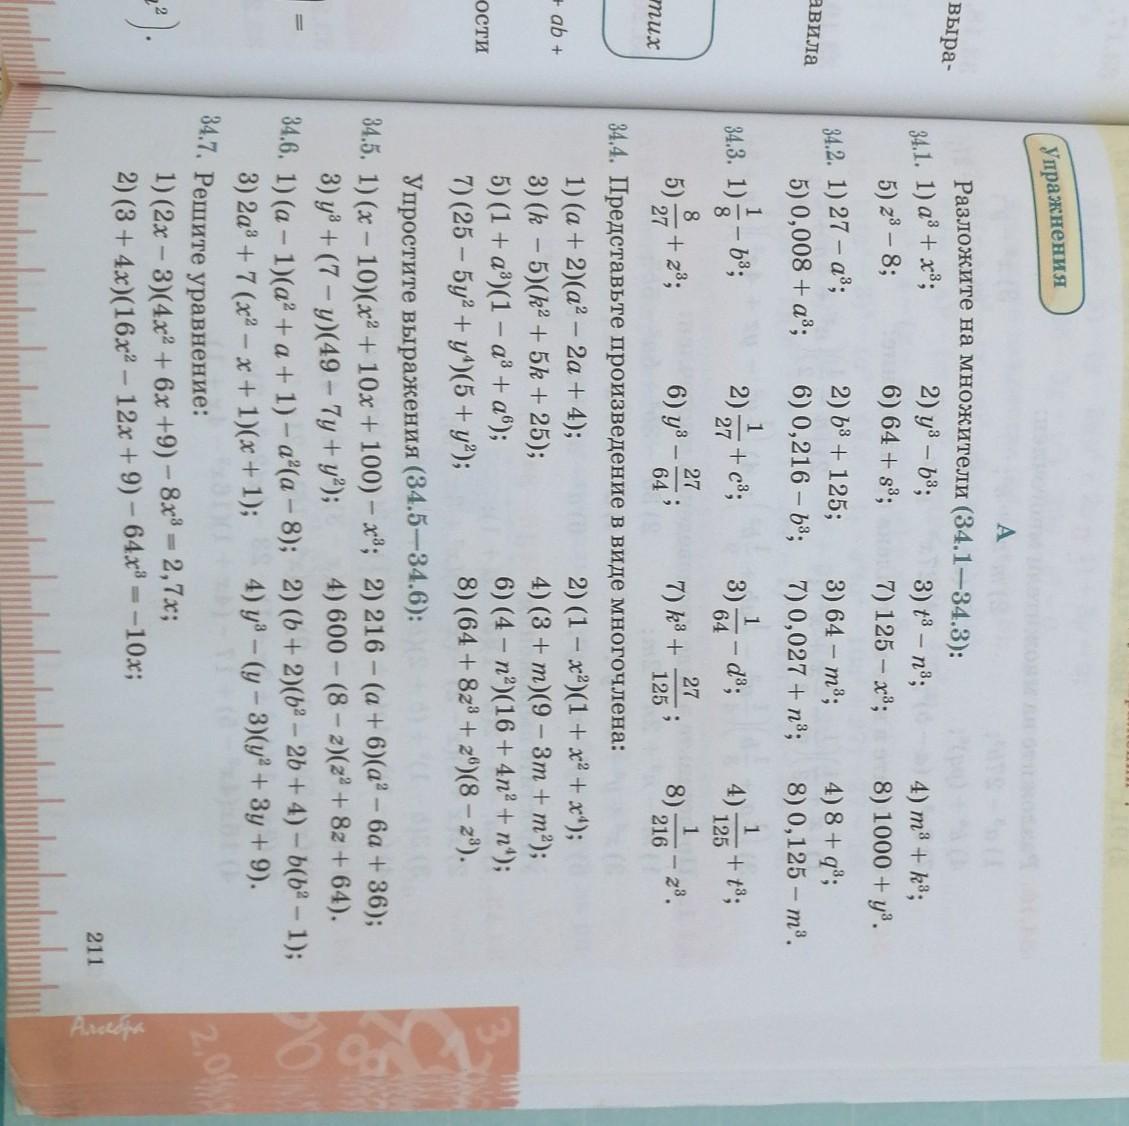 выра-
авила
тих
+ ab +
ости
=
²).
Упражнения
А
Разложите на множители (34.1—34.3):
34.1. 1) a³ + x³; 2) y³ − b³; 3) t³ − n³; 4) m³ + k³;
5) z³ − 8; 6) 64 + s³; 7) 125 − x³; 8) 1000 + y³.
34.2. 1) 27 − a³; 2) b³ + 125; 3) 64 − m³; 4) 8 + q³;
5) 0,008 + a³; 6) 0,216 − b³; 7) 0,027 + n³; 8) 0,125 − m³.
34.3. 1) 1/8 − b³; 2) 1/27 + c³; 3) 1/64 − d³; 4) 1/125 + t³;
5) 8/27 + z³; 6) y³ − 27/64; 7) k³ + 27/125; 8) 1/216 − z³.
34.4. Представьте произведение в виде многочлена:
1) (a + 2)(a² − 2a + 4); 2) (1 − x²)(1 + x² + x⁴);
3) (k − 5)(k² + 5k + 25); 4) (3 + m)(9 − 3m + m²);
5) (1 + a³)(1 − a³ + a⁶); 6) (4 − n²)(16 + 4n² + n⁴);
7) (25 − 5y² + y⁴)(5 + y²); 8) (64 + 8z³ + z⁶)(8 − z³).
Упростите выражения (34.5—34.6):
34.5. 1) (x − 10)(x² + 10x + 100) − x³; 2) 216 − (a + 6)(a² − 6a + 36);
3) y³ + (7 − y)(49 − 7y + y²); 4) 600 − (8 − z)(z² + 8z + 64).
34.6. 1) (a − 1)(a² + a + 1) − a²(a − 8); 2) (b + 2)(b² − 2b + 4) − b(b² − 1);
3) 2a³ + 7(x² − x + 1)(x + 1); 4) y³ − (y − 3)(y² + 3y + 9).
34.7. Решите уравнение:
1) (2x − 3)(4x² + 6x + 9) − 8x³ = 2,7x;
2) (3 + 4x)(16x² − 12x + 9) − 64x³ = −10x;
211
Алгебра